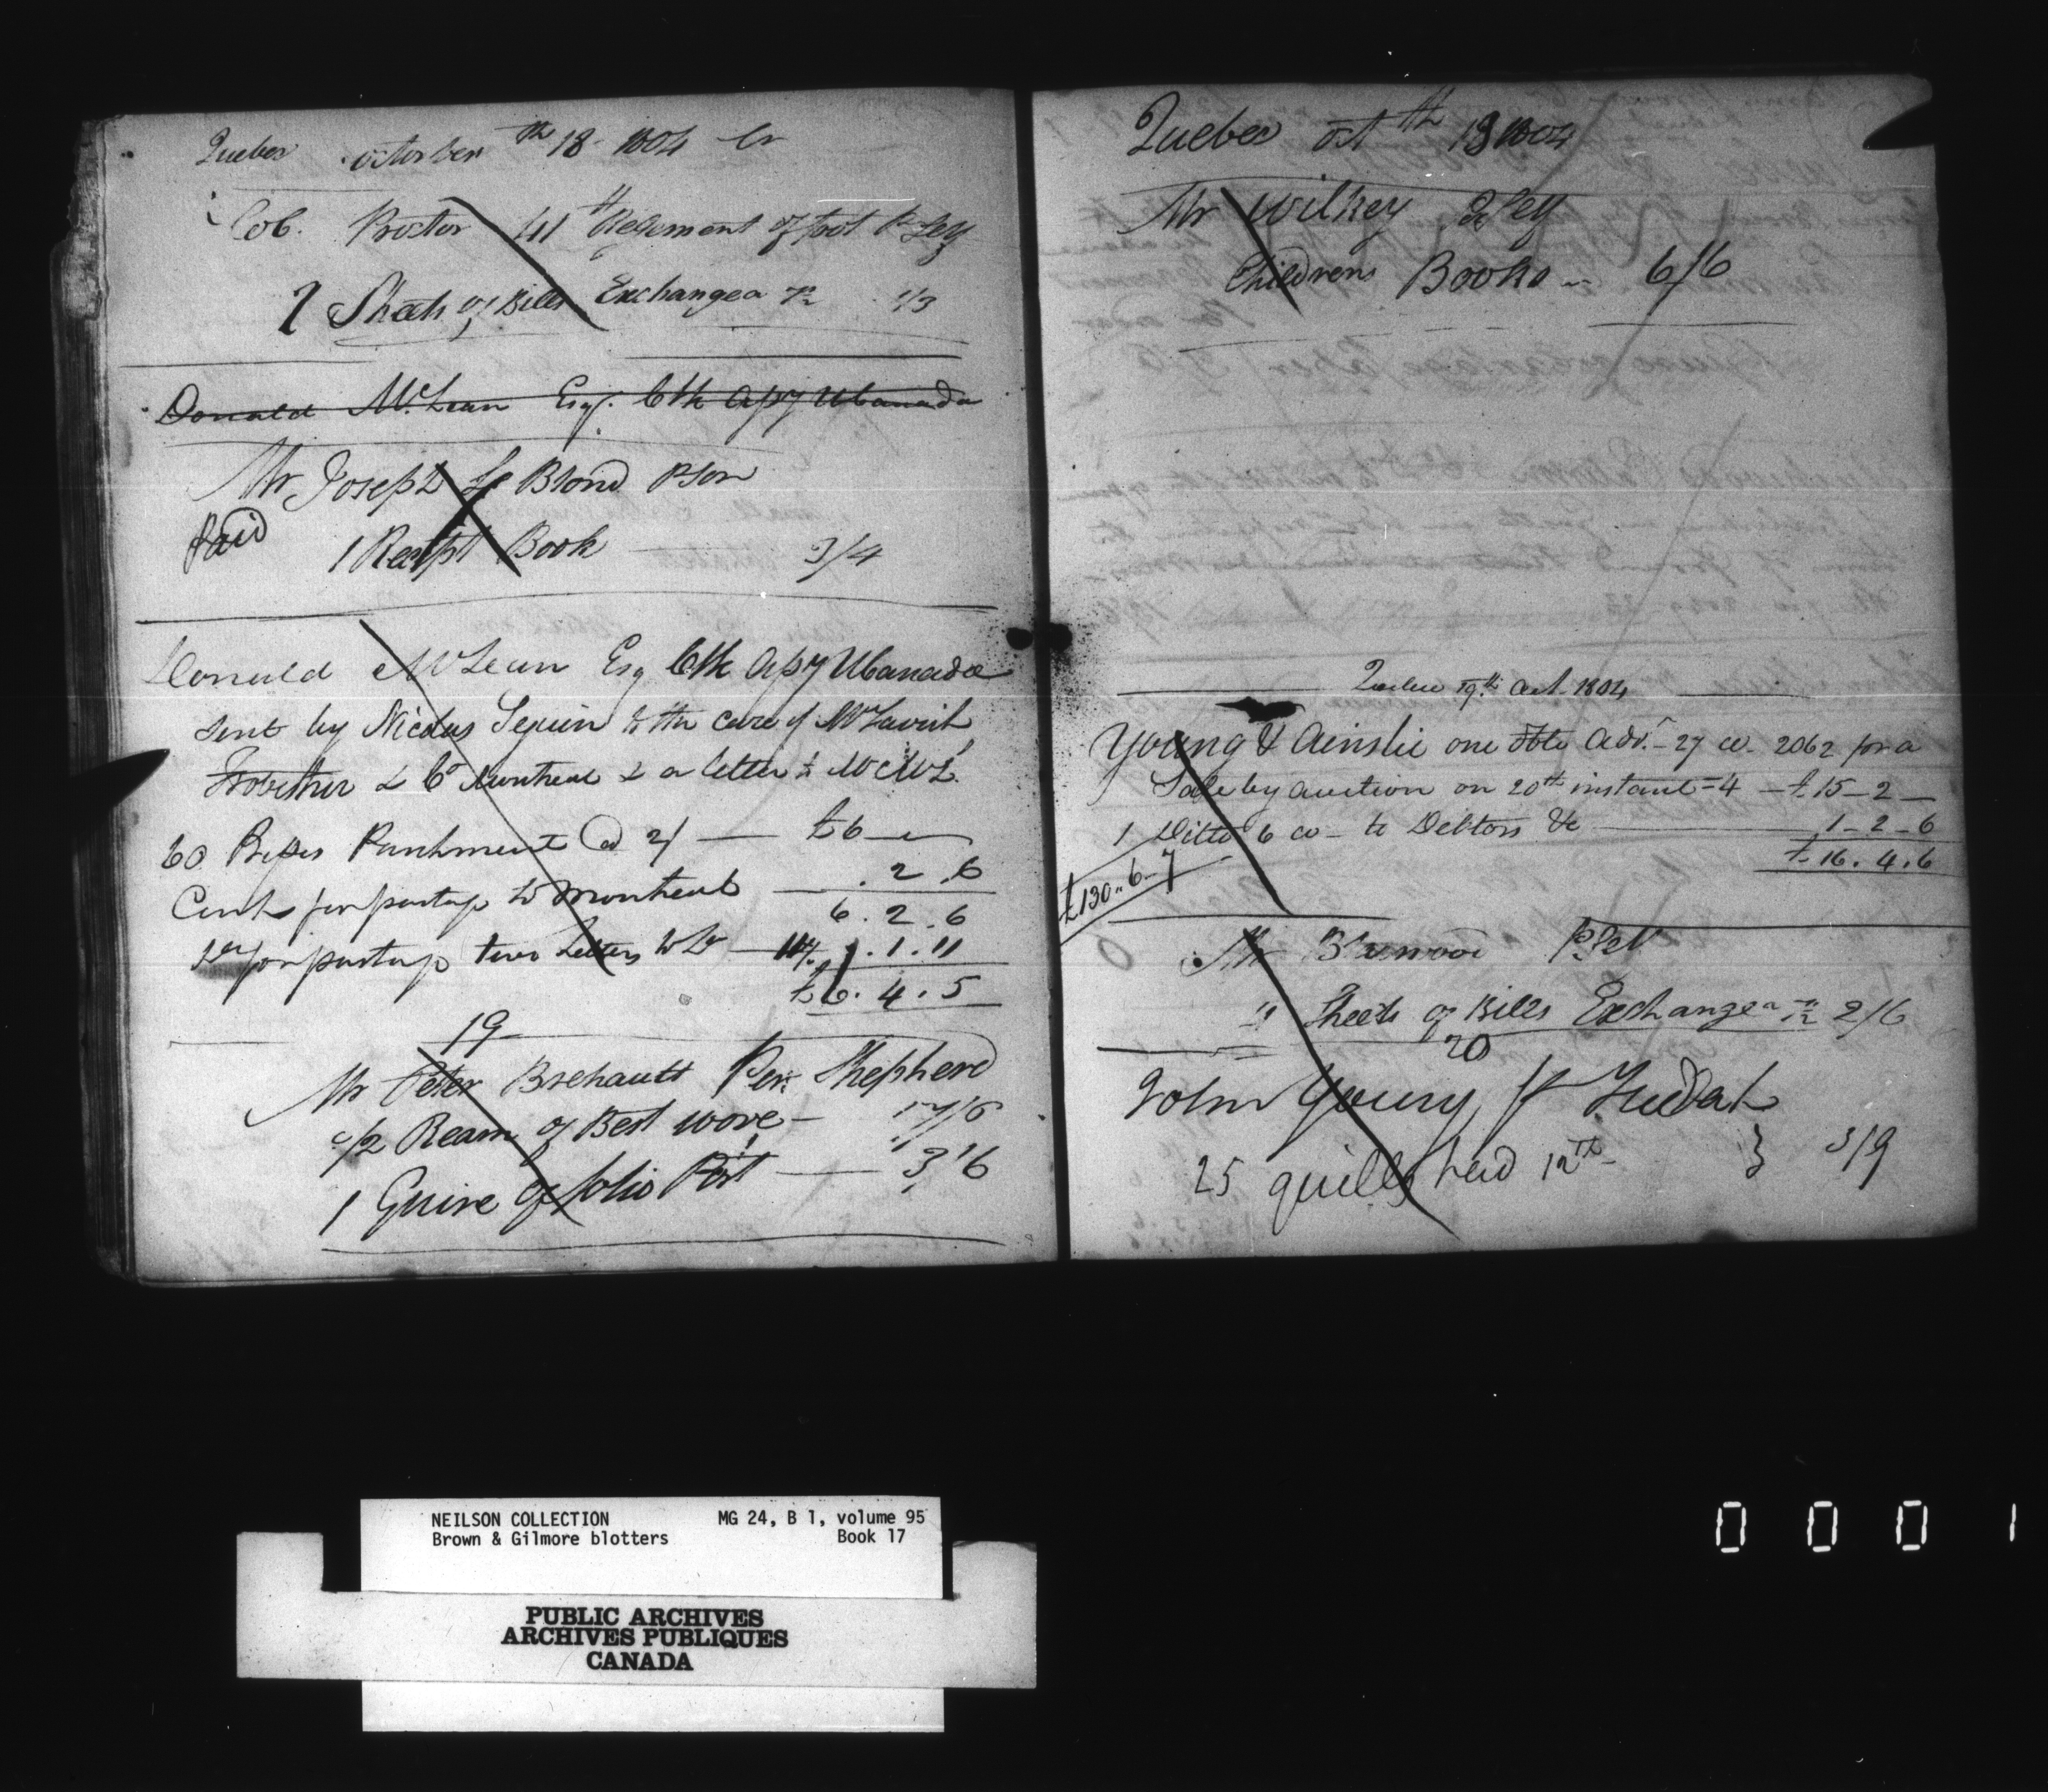 Quebec october th 18 1804 Cr
Col. Proctor 41 th Regement of foot P Sey
2 Sheets of Bills Exchange a 7½ 1/3
Donald McLean Esqr. Clk Apy UCanada
Mr Joseph Le Blond P Son
Paid
1 Reciept Book 3/4
Donald McLean Esq Clk Apy UCanada
sent by Nicolas Seguin to the care of Mr
Together & Co Montreal & a letter to
60 Parchment @ 2/ — £6 —
Cash for postage to Montreal — . 2 . 6
6 . 2 . 6
for postage two Letters to Do — 1 . 11
£6 . 4 . 5
19
Mr Peter Brehautt Per Shepherd
1/2 Ream of Best wove — 17/6
1 Quire of folio Post — 3/6
Quebec oct th 18 1804
Mr Wilkey Sey
Childrens Books 6/6
Quebec 19th Oct. 1804
Young & Ainslie one Adv. 27 2062 for a
Sale by auction on 20th instant = 4 — £ 15 — 2 —
1 Ditto 6 — to Debtors &c — 1 — 2 — 6
£ 16 . 4 . 6
£130 . 6 . 7
Mr
Sheets of Bills Exchange a 7½ 2/6
20
John Young P
25 quills 3/9
NEILSON COLLECTION MG 24, B 1, volume 95
Brown & Gilmore blotters Book 17
PUBLIC ARCHIVES
ARCHIVES PUBLIQUES
CANADA
0 0 0 1